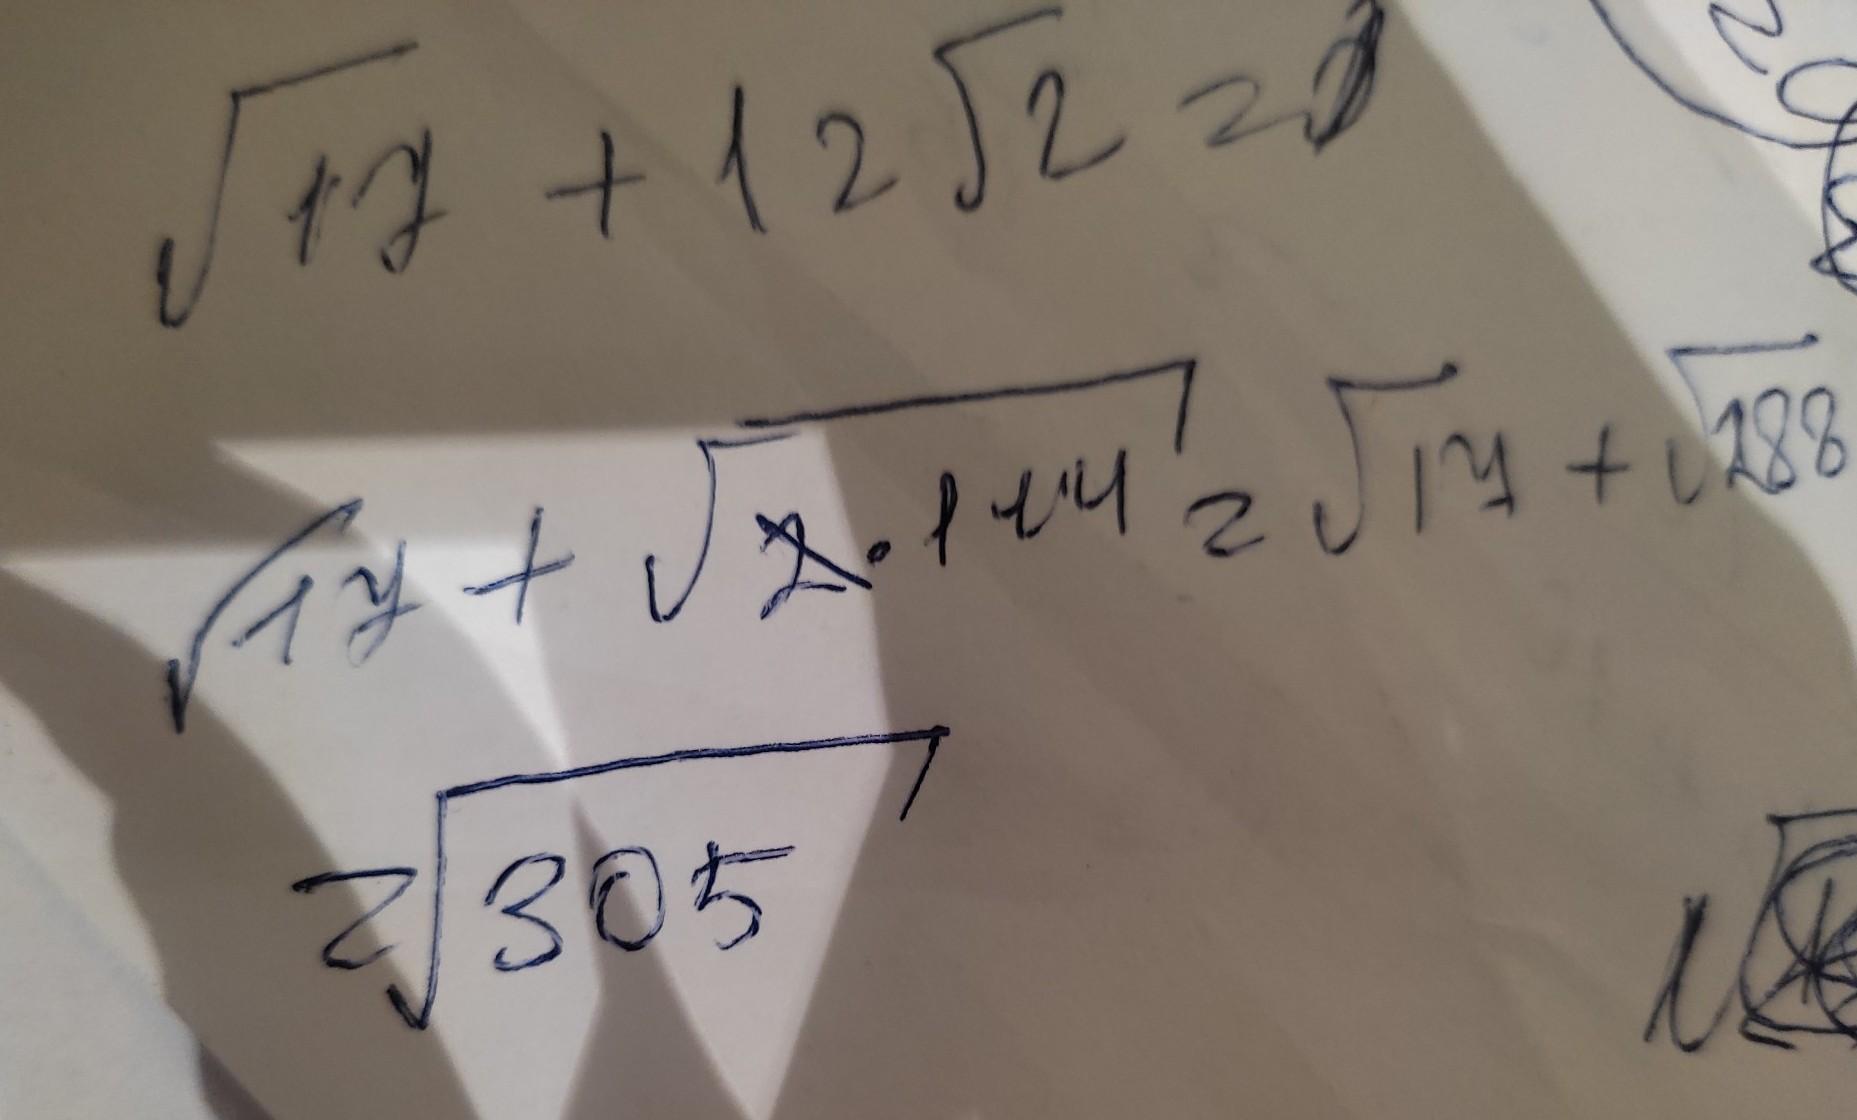 √17 + 12√2 =
√17 + √2·144 = √17 + √288
= √305